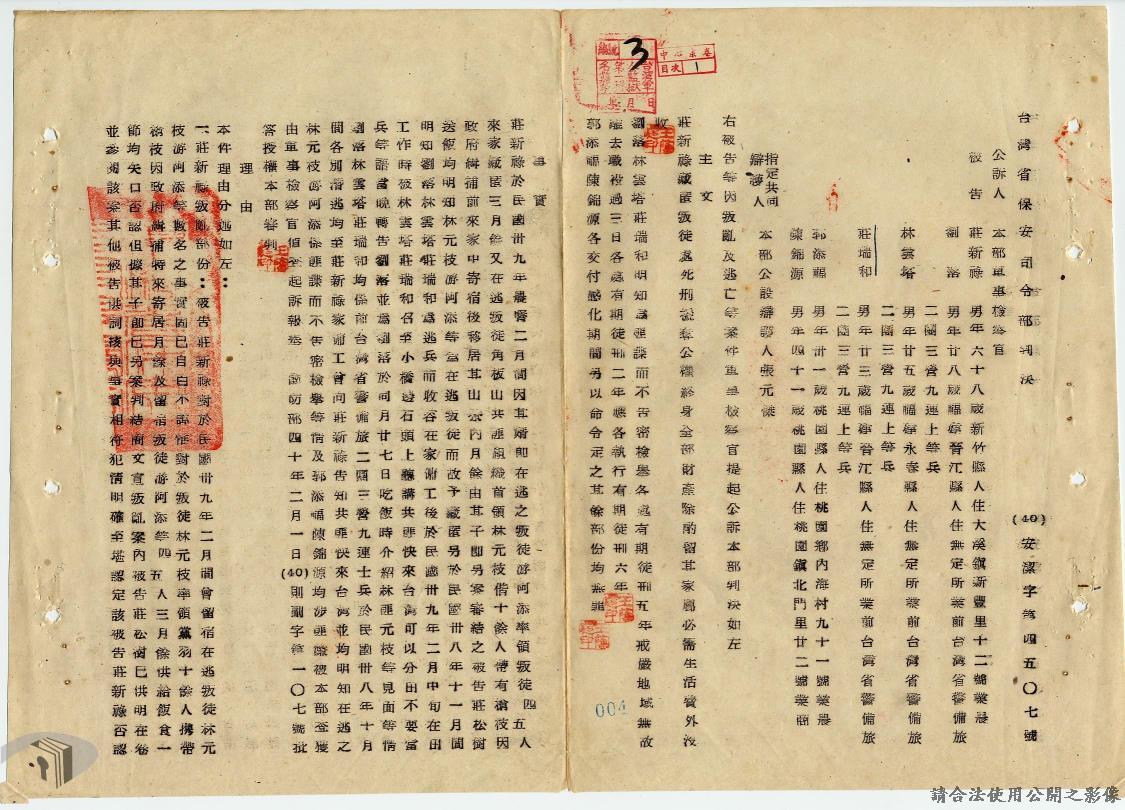 台灣省保安司令部判決
(40)安潔字第四五〇七號
公訴人　本部軍事檢察官
被告　莊新祿　男年六十八歲新竹縣人住大溪鎮新豐里十二號業農
劉洛　男年廿八歲福建晉江縣人住無定所業前台灣省警備旅
二團三營九連上等兵
林雲塔　男年廿五歲福建永春縣人住無定所業前台灣省警備旅
二團三營九連上等兵
莊瑞和　男年廿三歲福建晉江縣人住無定所業前台灣省警備旅
二團三營九連上等兵
郭添福　男年卅一歲桃園縣人住桃園鄉內海村九十一號業農
陳錦源　男年四十一歲桃園縣人住桃園鎮北門里廿二號業商
指定共同
辯護人　本部公設辯護人張元傑
右被告等因叛亂及逃亡等案件軍事檢察官提起公訴本部判決如左
主文
莊新祿藏匿叛徒處死刑褫奪公權終身全部財產除酌留其家屬必需生活費外沒
收
劉洛林雲塔莊瑞和明知為匪諜而不告密檢舉各處有期徒刑五年戒嚴地域無故
離去職役過三日各處有期徒刑二年應各執行有期徒刑六年
郭添福陳錦源各交付感化期間另以命令定之其餘部份均無罪
事實
莊新祿於民國卅九年農曆二月間因其婿即在逃之叛徒游阿添率領叛徒四五人
來家藏匿三月餘又在逃叛徒角板山共匪組織首領林元枝偕十餘人帶有槍枝因
政府緝捕前來家中寄宿後移居其山寮內月餘由其子即另案審結之被告莊松樹
送飯均明知林元枝游阿添等為在逃叛徒而故予藏匿另於民國卅八年十一月間
明知劉洛林雲塔莊瑞和為逃兵而收容在家傭工後於民國卅九年二月中旬在田
工作時被林雲塔莊瑞和召至小橋邊石頭上聽講共匪快來台灣可以分田不要當
兵等語當晚轉告劉洛並為劉洛於同月廿七日吃飯時介紹林匪元枝等見面等情
劉洛林雲塔莊瑞和均係前台灣省警備旅二團三營九連士兵於民國卅八年十月
間各別潛逃均至莊新祿家傭工會向莊新祿告知共匪快來台灣並均明知在逃之
林元枝游阿添係匪諜而不告密檢舉等情及郭添福陳錦源均涉匪嫌被本部查獲
由軍事檢察官偵查起訴報奉　國防部四十年二月一日(40)則剛字第一〇七號批
答授權本部審判
理由
本件理由分述如左：
一、莊新祿叛亂部份：被告莊新祿對於民國卅九年二月間曾留宿在逃叛徒林元
枝游阿添等數名之事實固已自白不諱惟對於叛徒林元枝率領黨羽十餘人攜帶
槍枝因政府緝捕特來寄居月餘及留宿叛徒游阿添等四五人三月餘供給飯食一
節均矢口否認但據其子即已另案判結簡文宣叛亂案內被告莊松樹已供明在卷
並參閱該案其他被告供詞核與事實相符犯情明確至堪認定該被告莊新祿否認
3
中心永卷
目次　1
004
請合法使用公開之影像